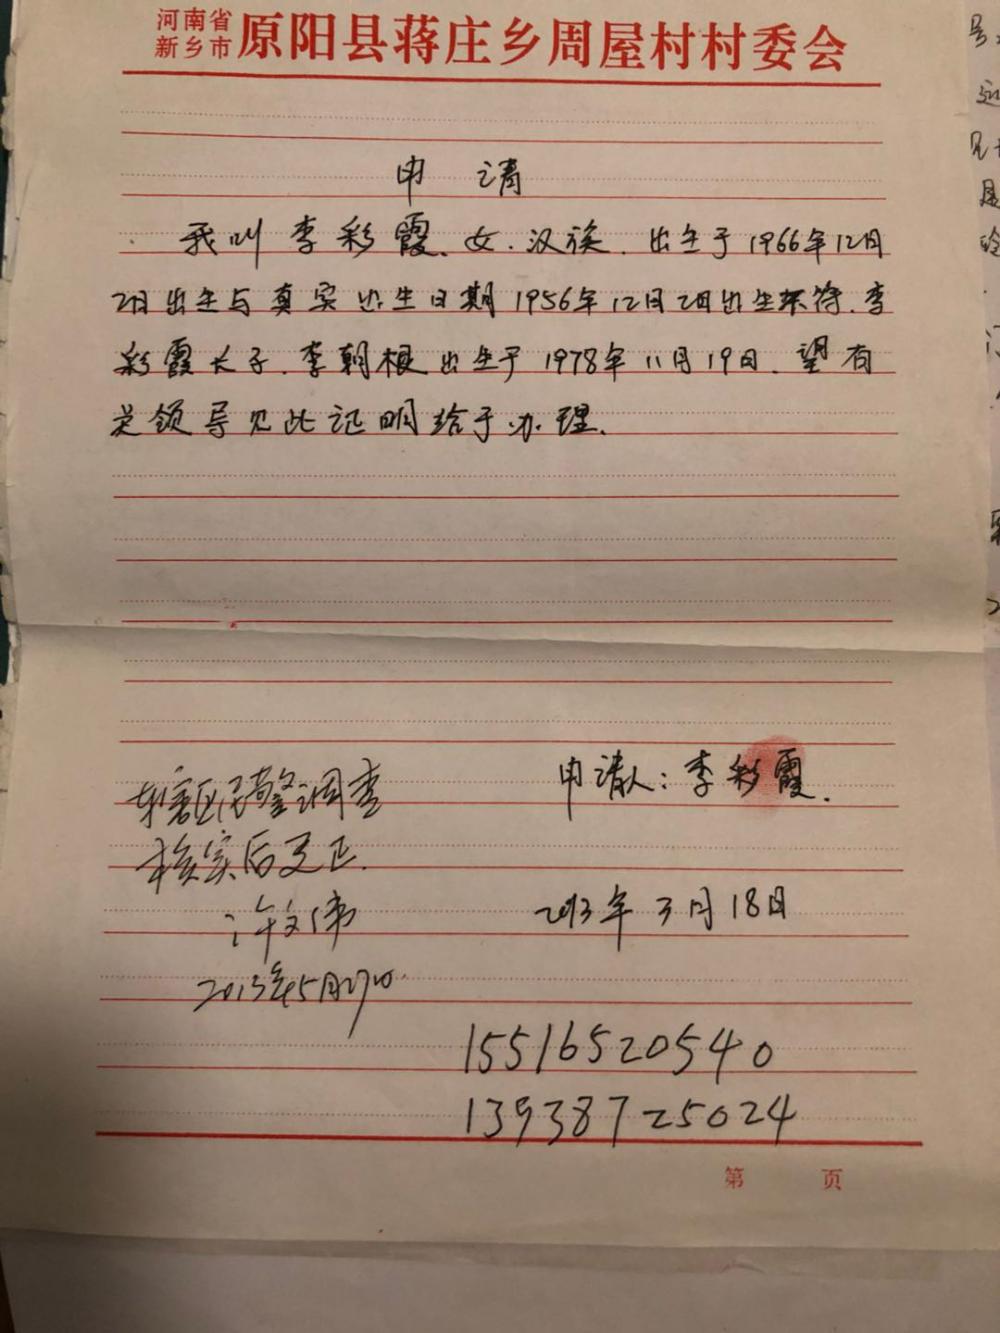 河南省
新乡市 原阳县蒋庄乡周屋村村委会
申 请
我叫李彩霞、女、汉族、出生于1966年12月
2日出生与真实出生日期1956年12月2日出生不符、李
彩霞长子、李朝根出生于1978年11月19日、望有
关领导见此证明给于办理、
申请人：李彩霞、
辖区民警调查
核实后更正、
许文伟
2013年3月18日
2013年5月27日
15516520540
13938725024
第 页